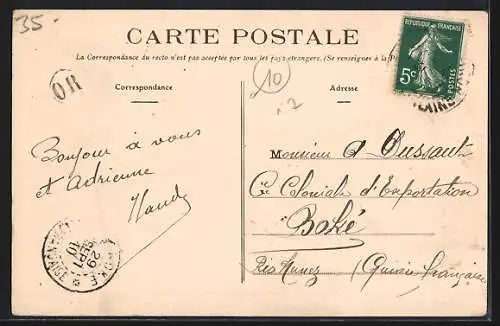 35
CARTE POSTALE
La Correspondance du recto n'est pas acceptée par tous les pays étrangers. (Se renseignes à la
OR
10
Correspondance
Adresse
RÉPUBLIQUE FRANÇAISE
5c
POSTES
2
Bonjour à vous
et Adrienne
Monsieur
Cie Coloniale d'Exportation
Boké
Rio Nunez (Guinée française
29
SEPT
10